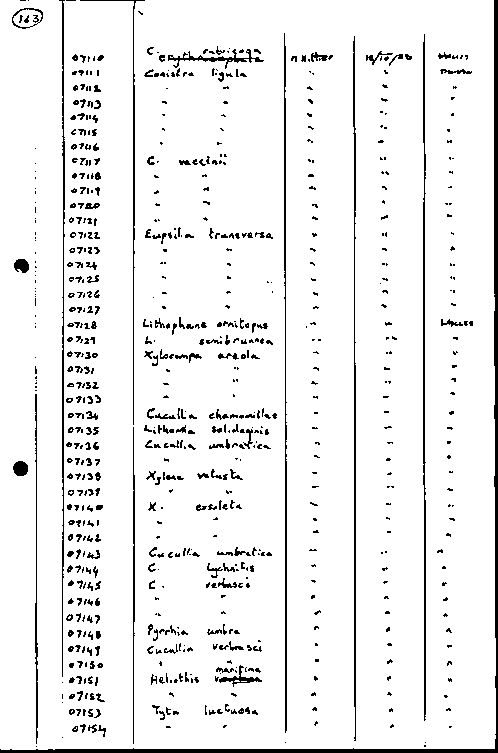 163
07110 C. rubiginea erythrocephala 12/10/82
07111 Conistra ligula " "
07112 " " " " "
07113 " " " " "
07114 " " " " "
07115 " " " " "
07116 " " " " "
07117 C. vaccinii " " "
07118 " " " " "
07119 " " " " "
07120 " " " " "
07121 " " " " "
07122 Eupsilia transversa " " "
07123 " " " " "
07124 " " " " "
07125 " " " " "
07126 " " " " "
07127 " " " " "
07128 Lithophane ornitopus " "
07129 L. semibrunnea " " "
07130 Xylocampa areola " " "
07131 " " " " "
07132 " " " " "
07133 " " " " "
07134 Cucullia chamomillae " " "
07135 Lithomia solidaginis " " "
07136 Cucullia umbratica " " "
07137 " " " " "
07138 Xylena vetusta " " "
07139 " " " " "
07140 X. exsoleta " " "
07141 " " " " "
07142 " " " " "
07143 Cucullia umbratica " " "
07144 C. lychnitis " " "
07145 C. verbasci " " "
07146 " " " " "
07147 " " " " "
07148 Pyrrhia umbra " " "
07149 Cucullia verbasci " " "
07150 " " " " "
07151 Heliothis maritima " " "
07152 " " " " "
07153 Tyta luctuosa " " "
07154 " " " " "